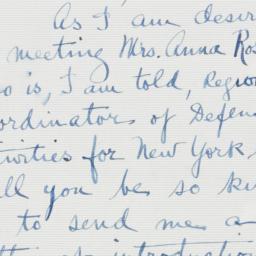 As I am desir
meeting Mrs. Anna Ros
o is, I am told, Region
ordinator of Defens
tivities for New York
ll you be so ki
to send me a
introduction